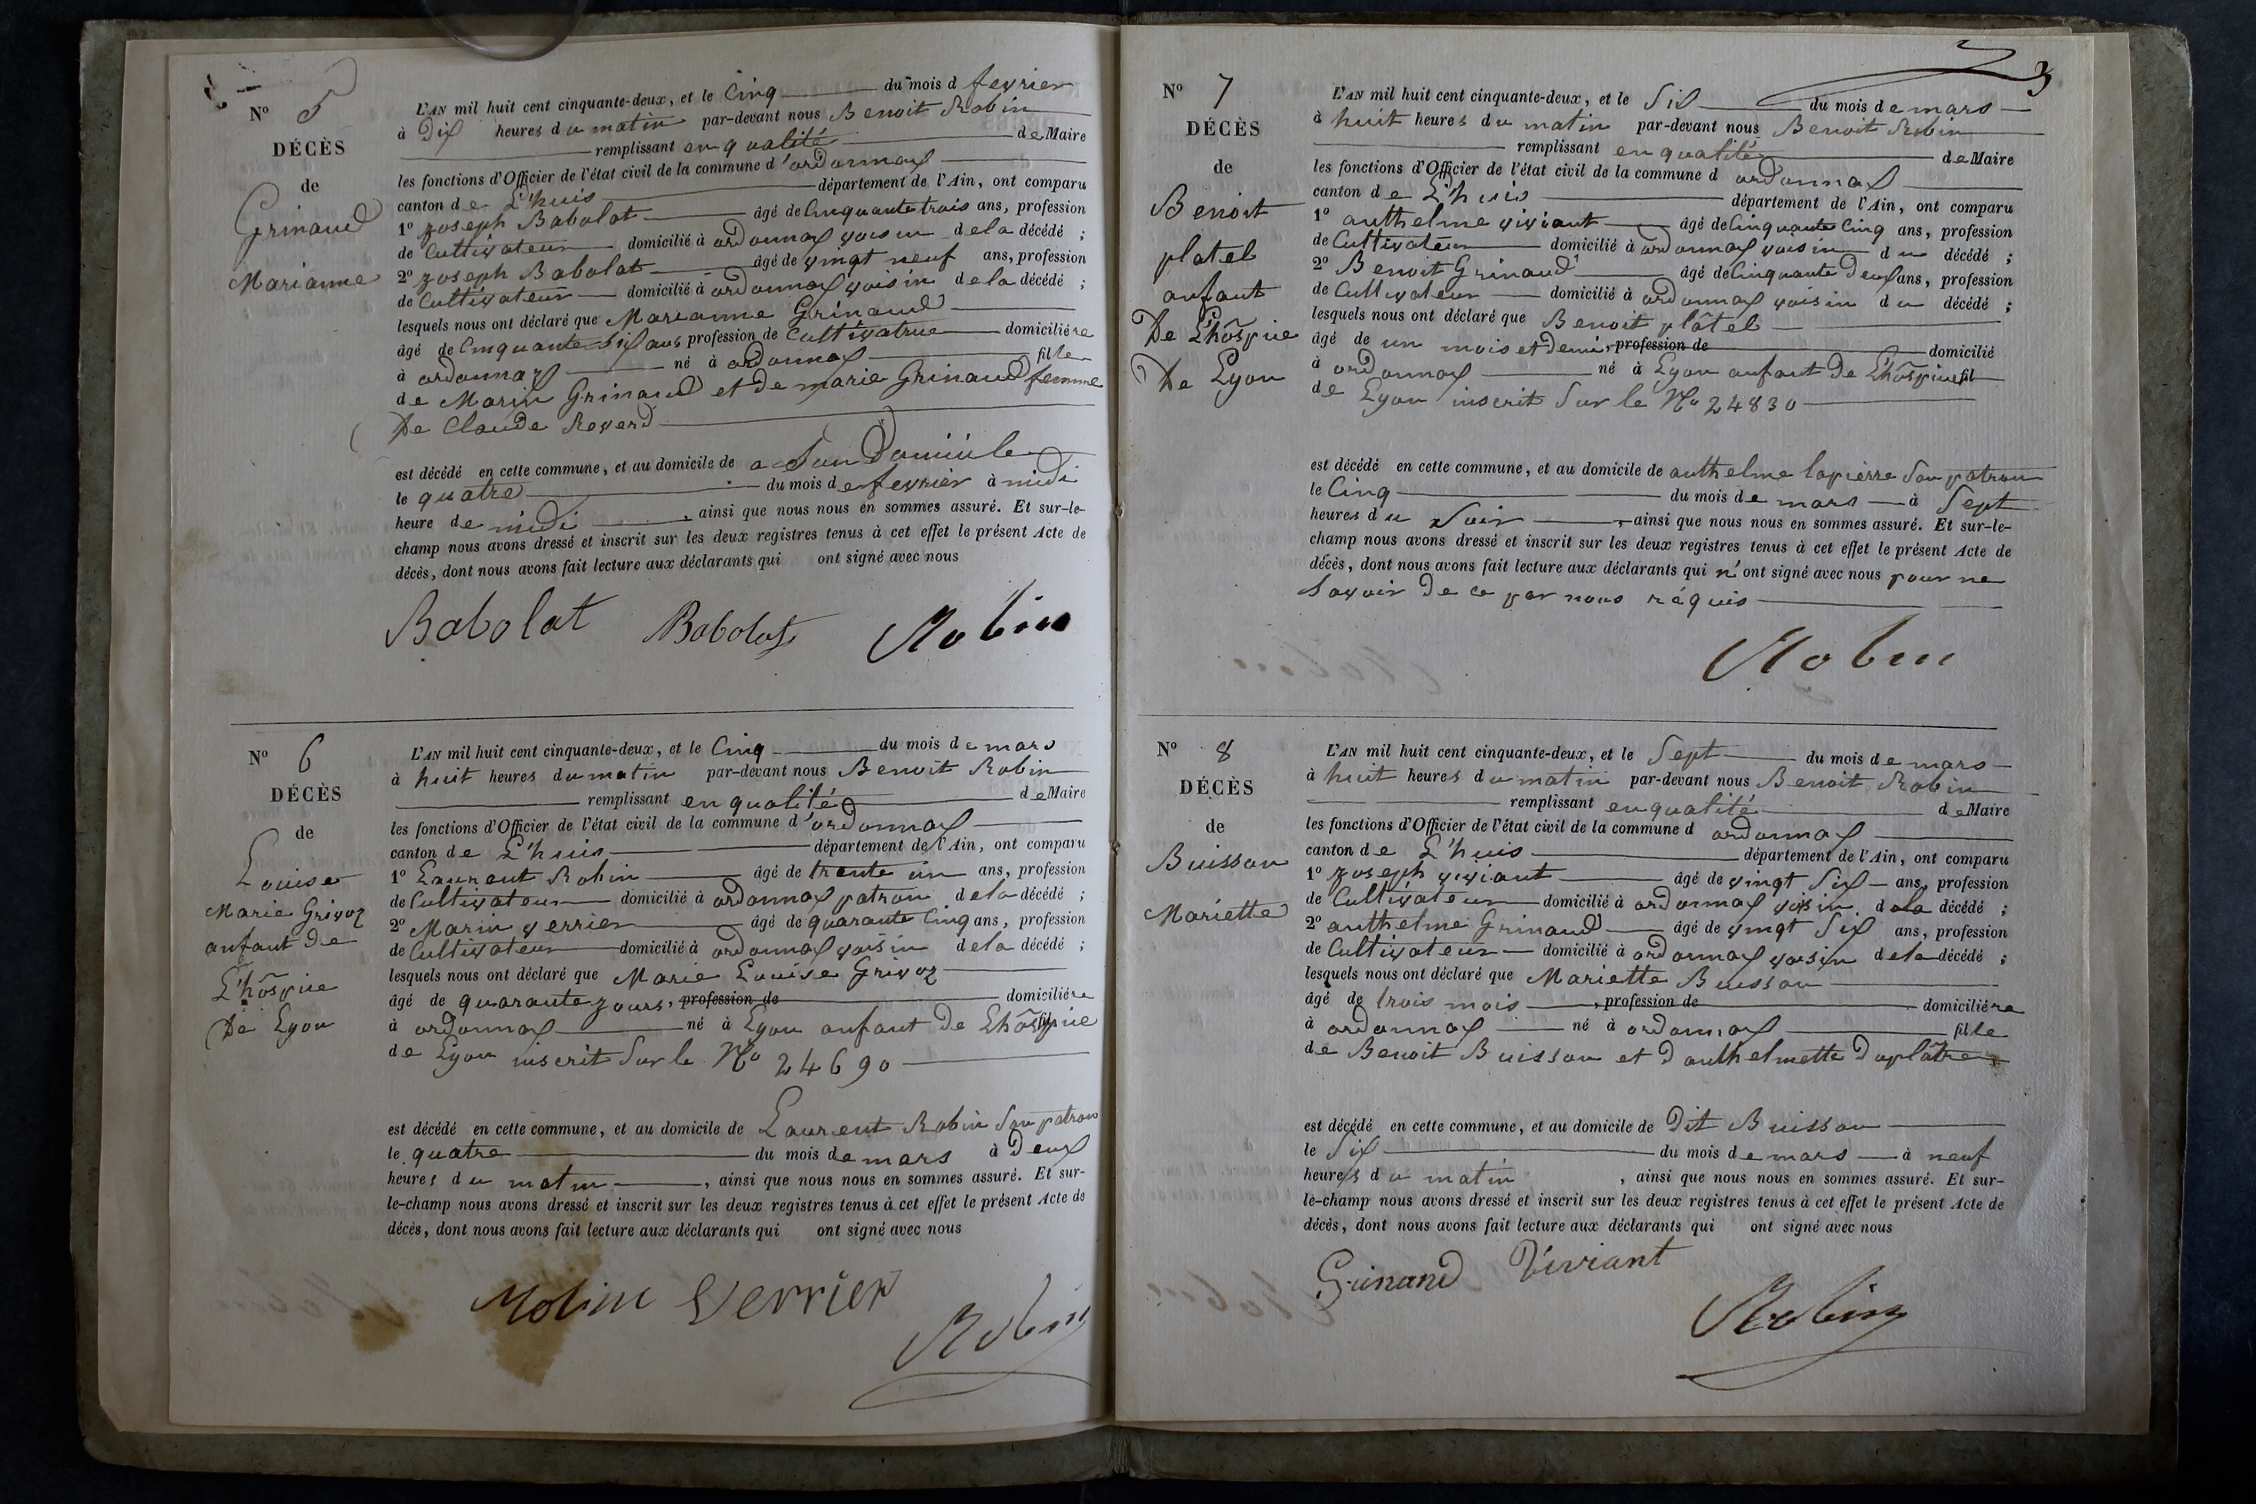 N° 5
DÉCÈS
de
Grinand
Marianne
L'AN mil huit cent cinquante-deux, et le Cinq du mois d fevrier
à Dix heures du matin par-devant nous Benoit Robin
remplissant en qualité de Maire
les fonctions d'Officier de l'état civil de la commune d'ordonnax
canton de L'huis département de l'Ain, ont comparu
1° Joseph Babolat âgé de Cinquante trois ans, profession
de Cultivateur domicilié à ordonnax voisin de la décédé ;
2° Joseph Babolat âgé de vingt neuf ans, profession
de Cultivateur domicilié à ordonnax voisin de la décédé ;
lesquels nous ont déclaré que Marianne Grinand
âgé de Cinquante Six ans profession de Cultivatrice domiciliére
à ordonnax né à ordonnax fille
de Marin Grinand et de marie Grinand femme
De Claude Reverd
est décédé en cette commune, et au domicile de a Son Domicile
le quatre du mois de fevrier à midi
heure de midi , ainsi que nous nous en sommes assuré. Et sur-le-
champ nous avons dressé et inscrit sur les deux registres tenus à cet effet le présent Acte de
décès, dont nous avons fait lecture aux déclarants qui ont signé avec nous
Babolat Babolat Robin
N° 6
DÉCÈS
de
Louise
Marie Grivoz
anfant de
L'hôspice
De Lyon
L'AN mil huit cent cinquante-deux, et le Cinq du mois de mars
à huit heures du matin par-devant nous Benoit Robin
remplissant en qualité de Maire
les fonctions d'Officier de l'état civil de la commune d'ordonnax
canton de L'huis département de l'Ain, ont comparu
1° Laurent Robin âgé de trente un ans, profession
de Cultivateur domicilié à ordonnax patron de la décédé ;
2° Marin verrier âgé de quarante Cinq ans, profession
de Cultivateur domicilié à ordonnax voisin de la décédé ;
lesquels nous ont déclaré que Marie Louise Grivoz
âgé de quarante jours, profession de domiciliére
à ordonnax né à Lyon anfant de L'hôspice fil
de Lyon inscrit Sur le N° 24690
est décédé en cette commune, et au domicile de Laurent Robin Son patron
le quatre du mois de mars à Deux
heures du matin , ainsi que nous nous en sommes assuré. Et sur-
le-champ nous avons dressé et inscrit sur les deux registres tenus à cet effet le présent Acte de
décès, dont nous avons fait lecture aux déclarants qui ont signé avec nous
Robin Verrier
Robin
3
N° 7
DÉCÈS
de
Benoit
platel
anfant
De L'hôspice
De Lyon
L'AN mil huit cent cinquante-deux, et le Six du mois de mars
à huit heures du matin par-devant nous Benoit Robin
remplissant en qualité de Maire
les fonctions d'Officier de l'état civil de la commune d ordonnax
canton de L'huis département de l'Ain, ont comparu
1° anthelme viviant âgé de Cinquante Cinq ans, profession
de Cultivateur domicilié à ordonnax voisin du décédé ;
2° Benoit Grinand âgé de Cinquante Deux ans, profession
de Cultivateur domicilié à ordonnax voisin du décédé ;
lesquels nous ont déclaré que Benoit plâtel
âgé de un mois et demi, profession de domicilié
à ordonnax né à Lyon anfant De L'hôspice fil
de Lyon inscrit Sur le N° 24830
est décédé en cette commune, et au domicile de anthelme lapierre Son patron
le Cinq du mois de mars à Sept
heures du Soir , ainsi que nous nous en sommes assuré. Et sur-le-
champ nous avons dressé et inscrit sur les deux registres tenus à cet effet le présent Acte de
décès, dont nous avons fait lecture aux déclarants qui n'ont signé avec nous pour ne
Savoir De ce par nous réquis
Robin
N° 8
DÉCÈS
de
Buisson
Mariette
L'AN mil huit cent cinquante-deux, et le Sept du mois de mars
à huit heures du matin par-devant nous Benoit Robin
remplissant en qualité de Maire
les fonctions d'Officier de l'état civil de la commune d ordonnax
canton de L'huis département de l'Ain, ont comparu
1° Joseph viviant âgé de vingt Six ans, profession
de Cultivateur domicilié à ordonnax voisin de la décédé ;
2° anthelme Grinand âgé de vingt Six ans, profession
de Cultivateur domicilié à ordonnax voisin de la décédé ;
lesquels nous ont déclaré que Mariette Buisson
âgé de trois mois , profession de domiciliére
à ordonnax né à ordonnax fille
de Benoit Buisson et D'anthelmette Duplâtre
est décédé en cette commune, et au domicile de Dit Buisson
le Six du mois de mars à neuf
heures du matin , ainsi que nous nous en sommes assuré. Et sur-
le-champ nous avons dressé et inscrit sur les deux registres tenus à cet effet le présent Acte de
décès, dont nous avons fait lecture aux déclarants qui ont signé avec nous
Grinand Viviant
Robin